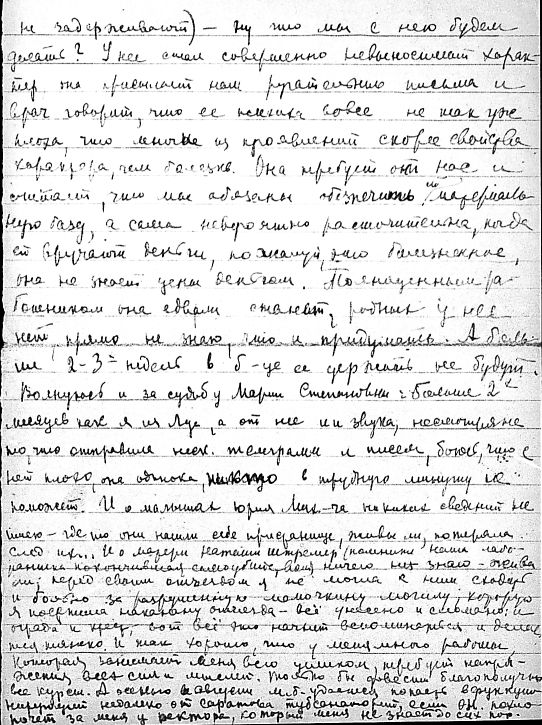 не задерживают) — ну что мы с нею будем
делать? У нее стал совершенно невыносимый харак-
тер она присылает нам ругательные письма и
врач говорит, что ее психика вовсе не так уж
плоха, что многие из проявлений скорее свойства
характера, чем болезнь. Она требует от нас и
считает, что мы обязаны обеспечить ей материаль-
ную базу, а сама невероятно расточительна, когда
ей вручают деньги, пожалуй, это болезненное,
она не знает цены деньгам. Полноценным ра-
ботником она едва ли станет, родных у нее
нет, прямо не знаю, что и придумать. А боль-
ше 2-3х недель в б-це ее держать не будут.
Волнуюсь и за судьбу Марии Степановны: больше 2х
месяцев как я из Луги, а от нее ни звука, несмотря на
то, что отправила неск. телеграмм и писем, боюсь, что с
ней плохо, она одинока, никто в трудную минуту не
поможет. И о малышах Юрия Мих-ча никаких сведений не
имею — где то они нашли себе пристанище, живы ли, потеряла
след их... И о матери Наташи (помните наша лабо-
рантка покончившая самоубийств.) ничего не знаю — жива
ли; перед своим отъездом я не могла к ним сходить
и больно за разрушенную мамочкину могилу, которую
я посетила накануне отъезда — всё унесено и сломано, и
ограда и крест, вот всё это начнет вспоминаться и делает-
ся тяжко. И так хорошо, что у меня много работы,
которая занимает меня всю целиком, требует напря-
жения всех сил и мыслей. Только бы довести благополучно
все курсы. А осенью в августе м.б. удастся попасть в
недалеко от Саратова тубсанаторий, если он похло-
почет за меня у ректора, который меня не знает до сих пор